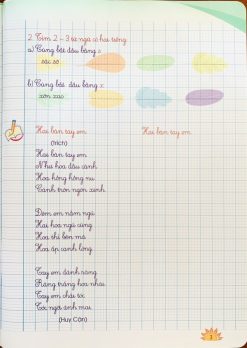 2. Tìm 2 - 3 từ ngữ có hai tiếng
a) Cùng bắt đầu bằng s
sâu sắc
b) Cùng bắt đầu bằng x
xôn xao
Hai bàn tay em
Hai bàn tay em
(trích)
Hai bàn tay em
Như hoa đầu cành
Hoa hồng hồng nụ
Cánh tròn ngón xinh
Đêm em nằm ngủ
Hai hoa ngủ cùng
Hoa thì bên má
Hoa ấp cạnh lòng
Tay em đánh răng
Răng trắng hoa nhài
Tay em chải tóc
Tóc ngời ánh mai
(Huy Cận)